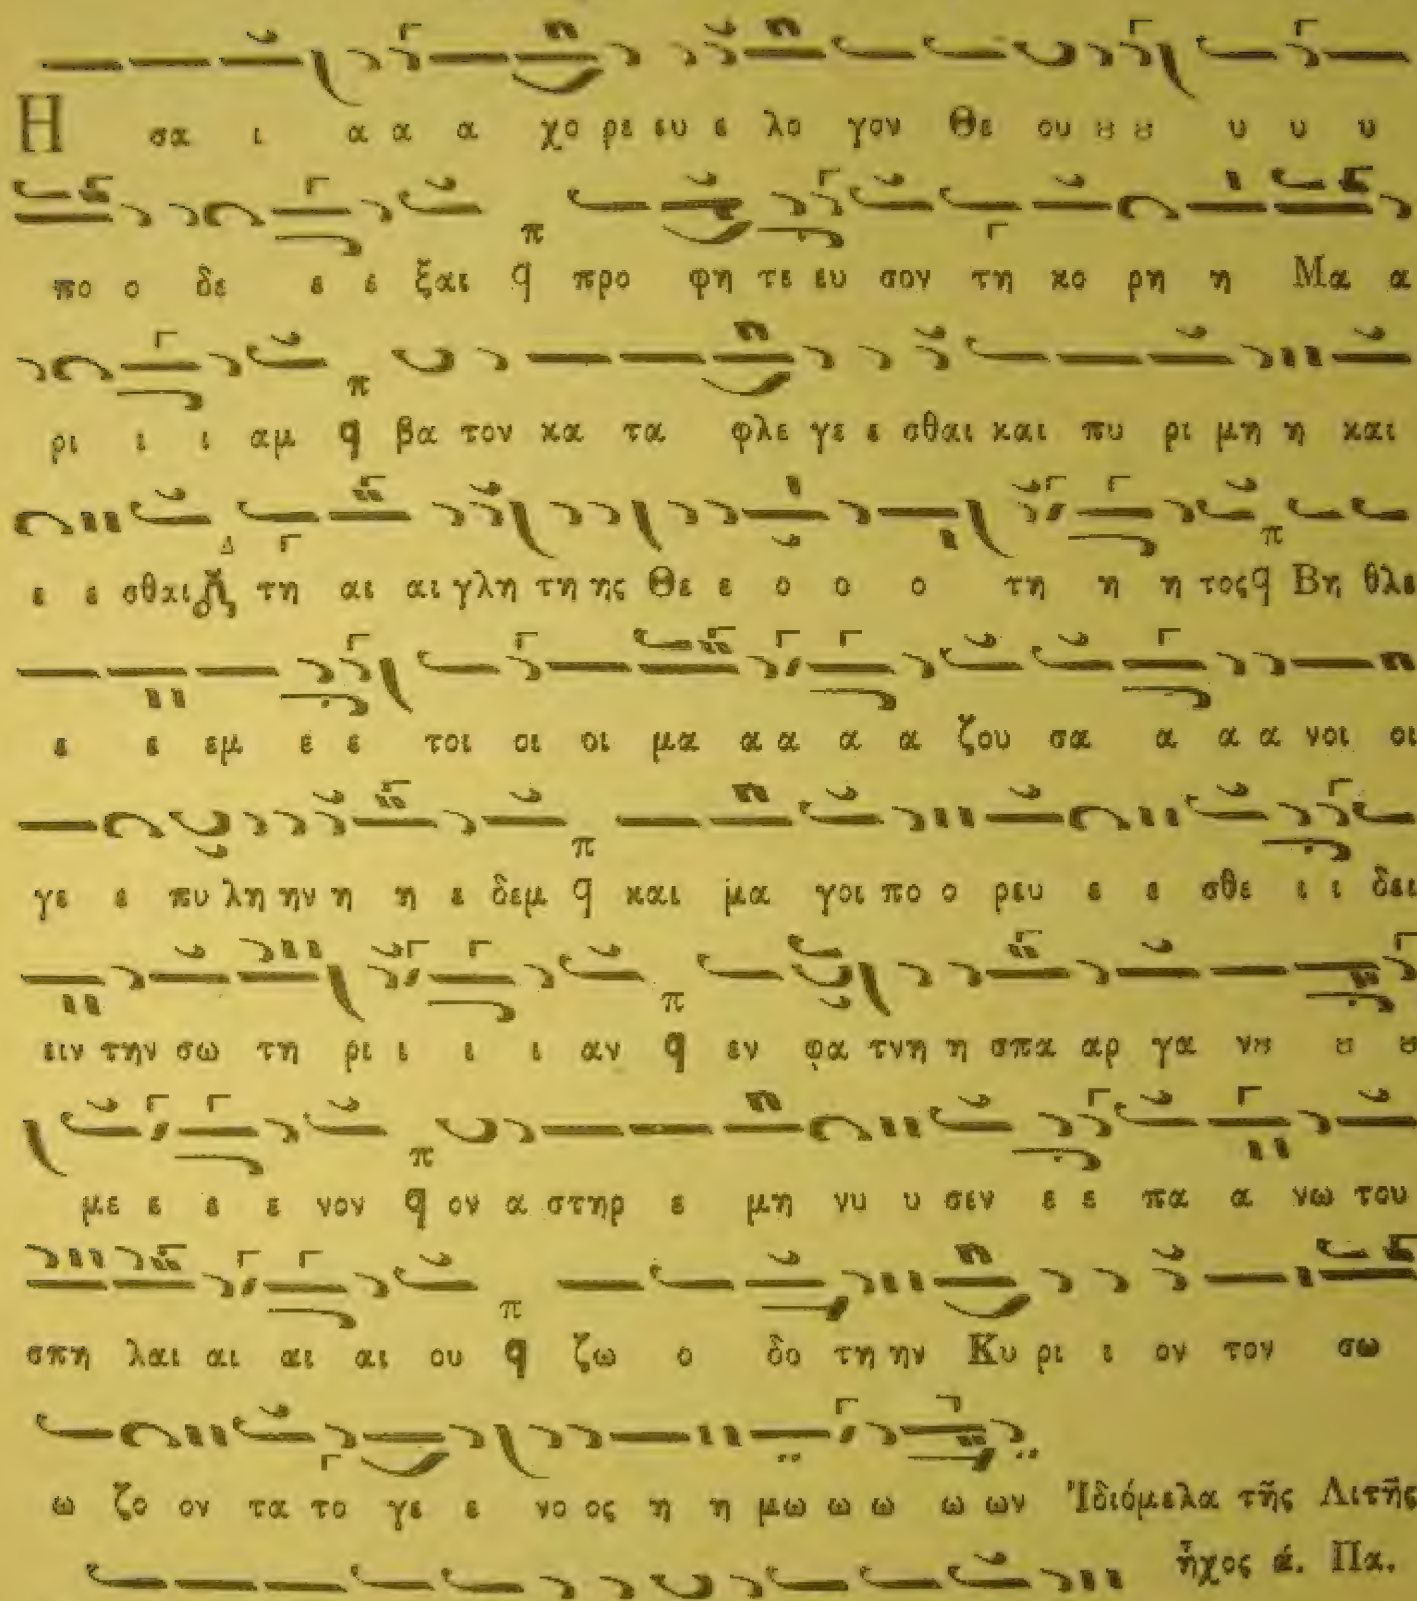 Η σα ι α α α χο ρε ευ ε λο γον Θε ου ȣ ȣ υ υ υ
πο ο δε ε ε ξαι q προ φη τε ευ σον τη κο ρη η Μα α
ρι ι ι αμ q βα τον κα τα φλε γε ε σθαι και πυ ρι μη η και
ε ε σθαι τη αι αι γλη τη ης Θε ε ο ο ο τη η η τος q Βη θλε
ε ε εμ ε ε τοι οι οι μα α α α α ζου σα α α α νοι οι
γε ε πυ λη ην η η ε δεμ q και μα γοι πο ο ρευ ε ε σθε ι ι δει
ειν την σω τη ρι ι ι ι αν q εν φα τνη η σπα αρ γα νȣ ȣ ȣ
με ε ε ε νον q ον α στηρ ε μη νυ υ σεν ε ε πα α νω του
σπη λαι αι αι αι ου q ζω ο δο τη ην Κυ ρι ι ον τον σω
ω ζο ον τα το γε ε νο ος η η μω ω ω ω ων Ἰδιόμελα τῆς Λιτῆς
ἦχος ά. Πα.